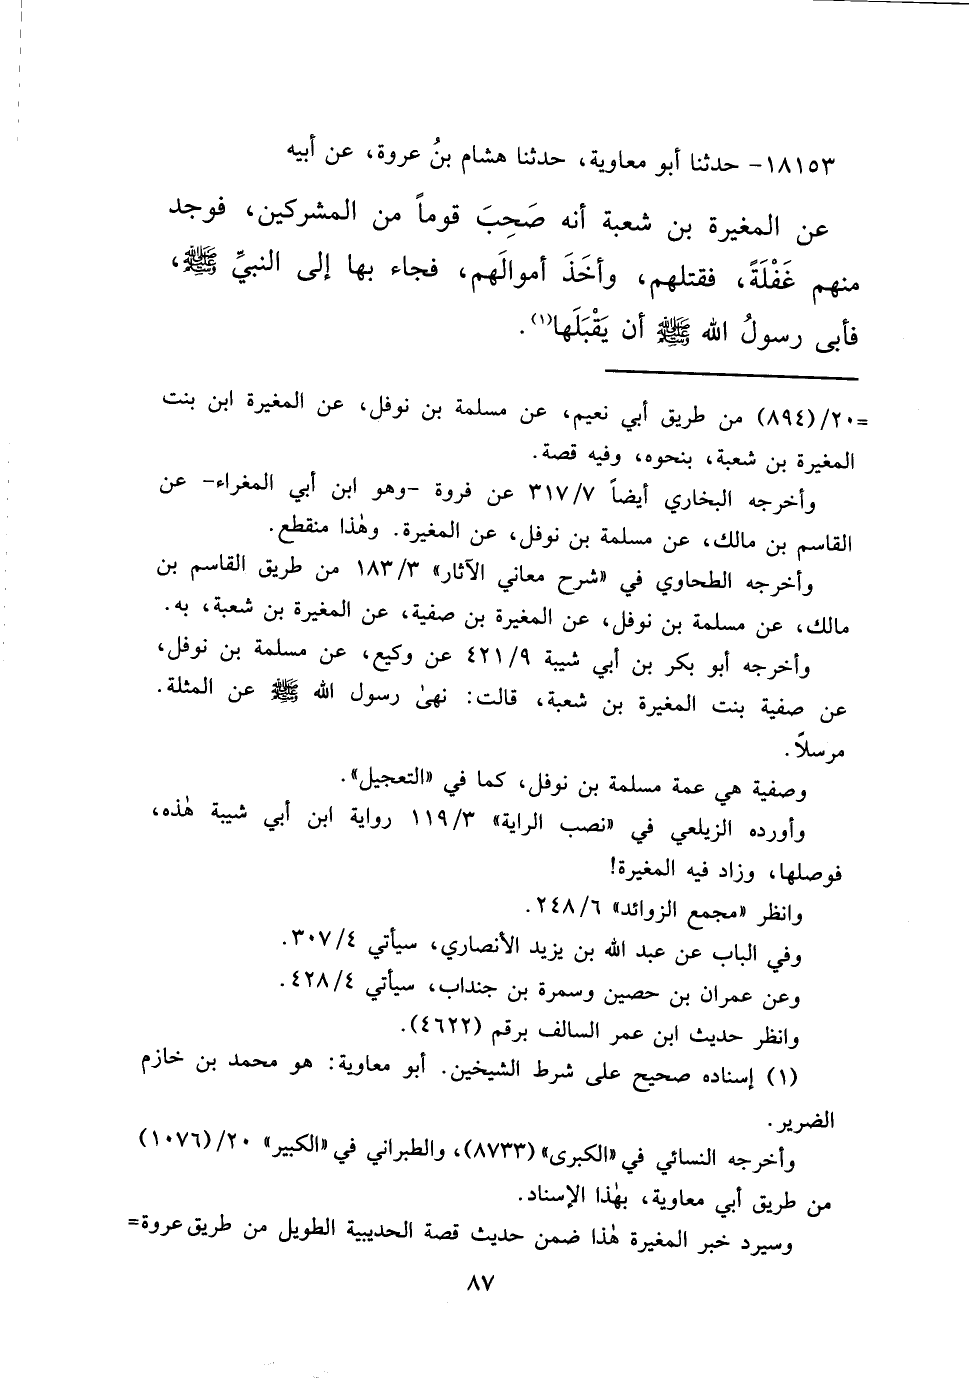 ١٨١٥٣- حدثنا أبو معاوية، حدثنا هشام بنُ عروة، عن أبيه
عن المغيرة بن شعبة أنه صَحِبَ قوماً من المشركين، فوجد
منهم غَفْلَةً، فقتلهم، وأخَذَ أموالَهم، فجاء بها إلى النبيِّ ﷺ،
فأبى رسولُ الله ﷺ أن يَقْبَلَها(١).
=٢٠/(٨٩٤) من طريق أبي نعيم، عن مسلمة بن نوفل، عن المغيرة ابن بنت
المغيرة بن شعبة، بنحوه، وفيه قصة.
وأخرجه البخاري أيضاً ٣١٧/٧ عن فروة -وهو ابن أبي المغراء- عن
القاسم بن مالك، عن مسلمة بن نوفل، عن المغيرة. وهٰذا منقطع.
وأخرجه الطحاوي في «شرح معاني الآثار» ١٨٣/٣ من طريق القاسم بن
مالك، عن مسلمة بن نوفل، عن المغيرة بن صفية، عن المغيرة بن شعبة، به.
وأخرجه أبو بكر بن أبي شيبة ٤٢١/٩ عن وكيع، عن مسلمة بن نوفل،
عن صفية بنت المغيرة بن شعبة، قالت: نهىٰ رسول الله ﷺ عن المثلة.
مرسلاً.
وصفية هي عمة مسلمة بن نوفل، كما في «التعجيل».
وأورده الزيلعي في «نصب الراية» ١١٩/٣ رواية ابن أبي شيبة هٰذه،
فوصلها، وزاد فيه المغيرة!
وانظر «مجمع الزوائد» ٢٤٨/٦.
وفي الباب عن عبد الله بن يزيد الأنصاري، سيأتي ٣٠٧/٤.
وعن عمران بن حصين وسمرة بن جنداب، سيأتي ٤٢٨/٤.
وانظر حديث ابن عمر السالف برقم (٤٦٢٢).
(١) إسناده صحيح على شرط الشيخين. أبو معاوية: هو محمد بن خازم
الضرير.
وأخرجه النسائي في «الكبرى» (٨٧٣٣)، والطبراني في «الكبير» ٢٠/(١٠٧٦)
من طريق أبي معاوية، بهٰذا الإسناد.
وسيرد خبر المغيرة هٰذا ضمن حديث قصة الحديبية الطويل من طريق عروة=
٨٧